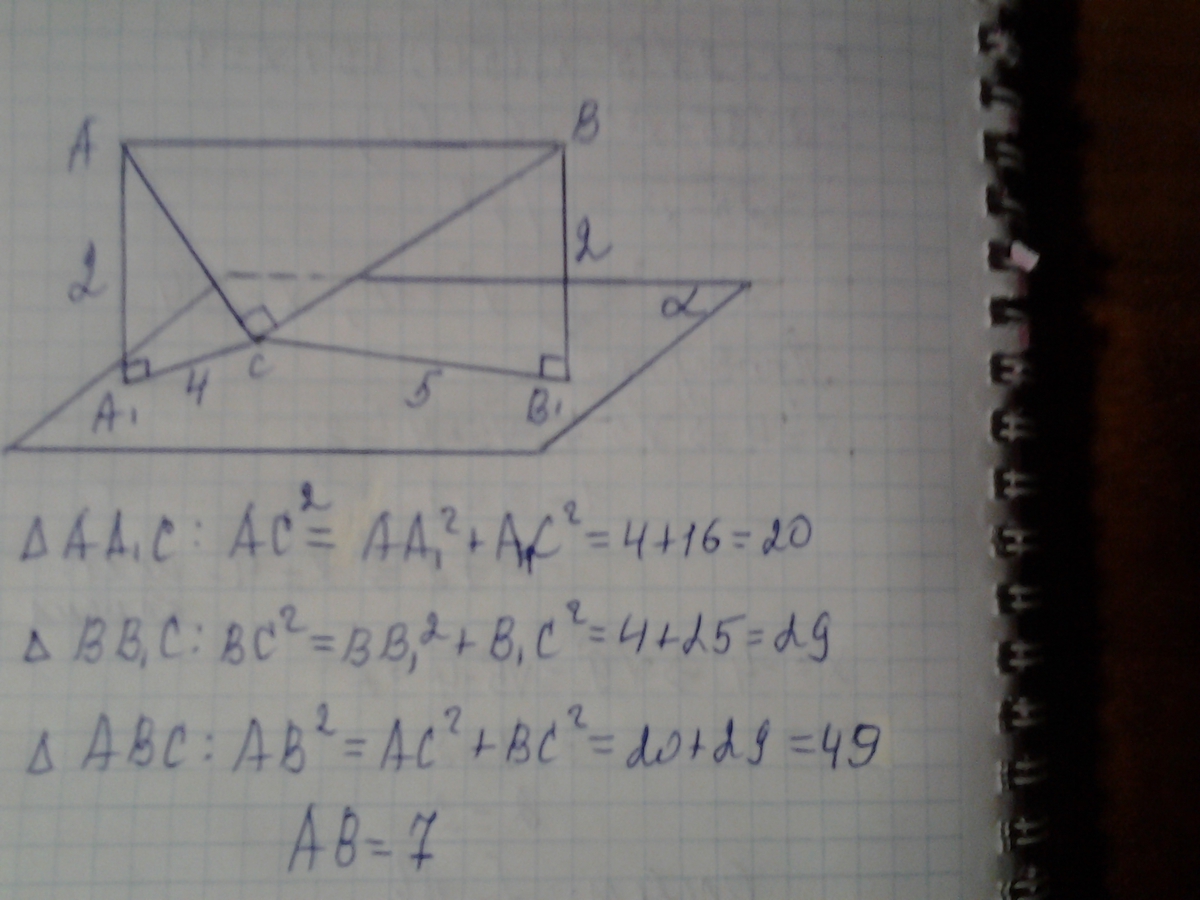 A B
2 2
α
4 C 5
A₁ B₁
Δ AA₁C: AC² = AA₁² + A₁C² = 4+16=20
Δ BB₁C: BC² = BB₁² + B₁C² = 4+25=29
Δ ABC: AB² = AC² + BC² = 20+29 = 49
AB = 7